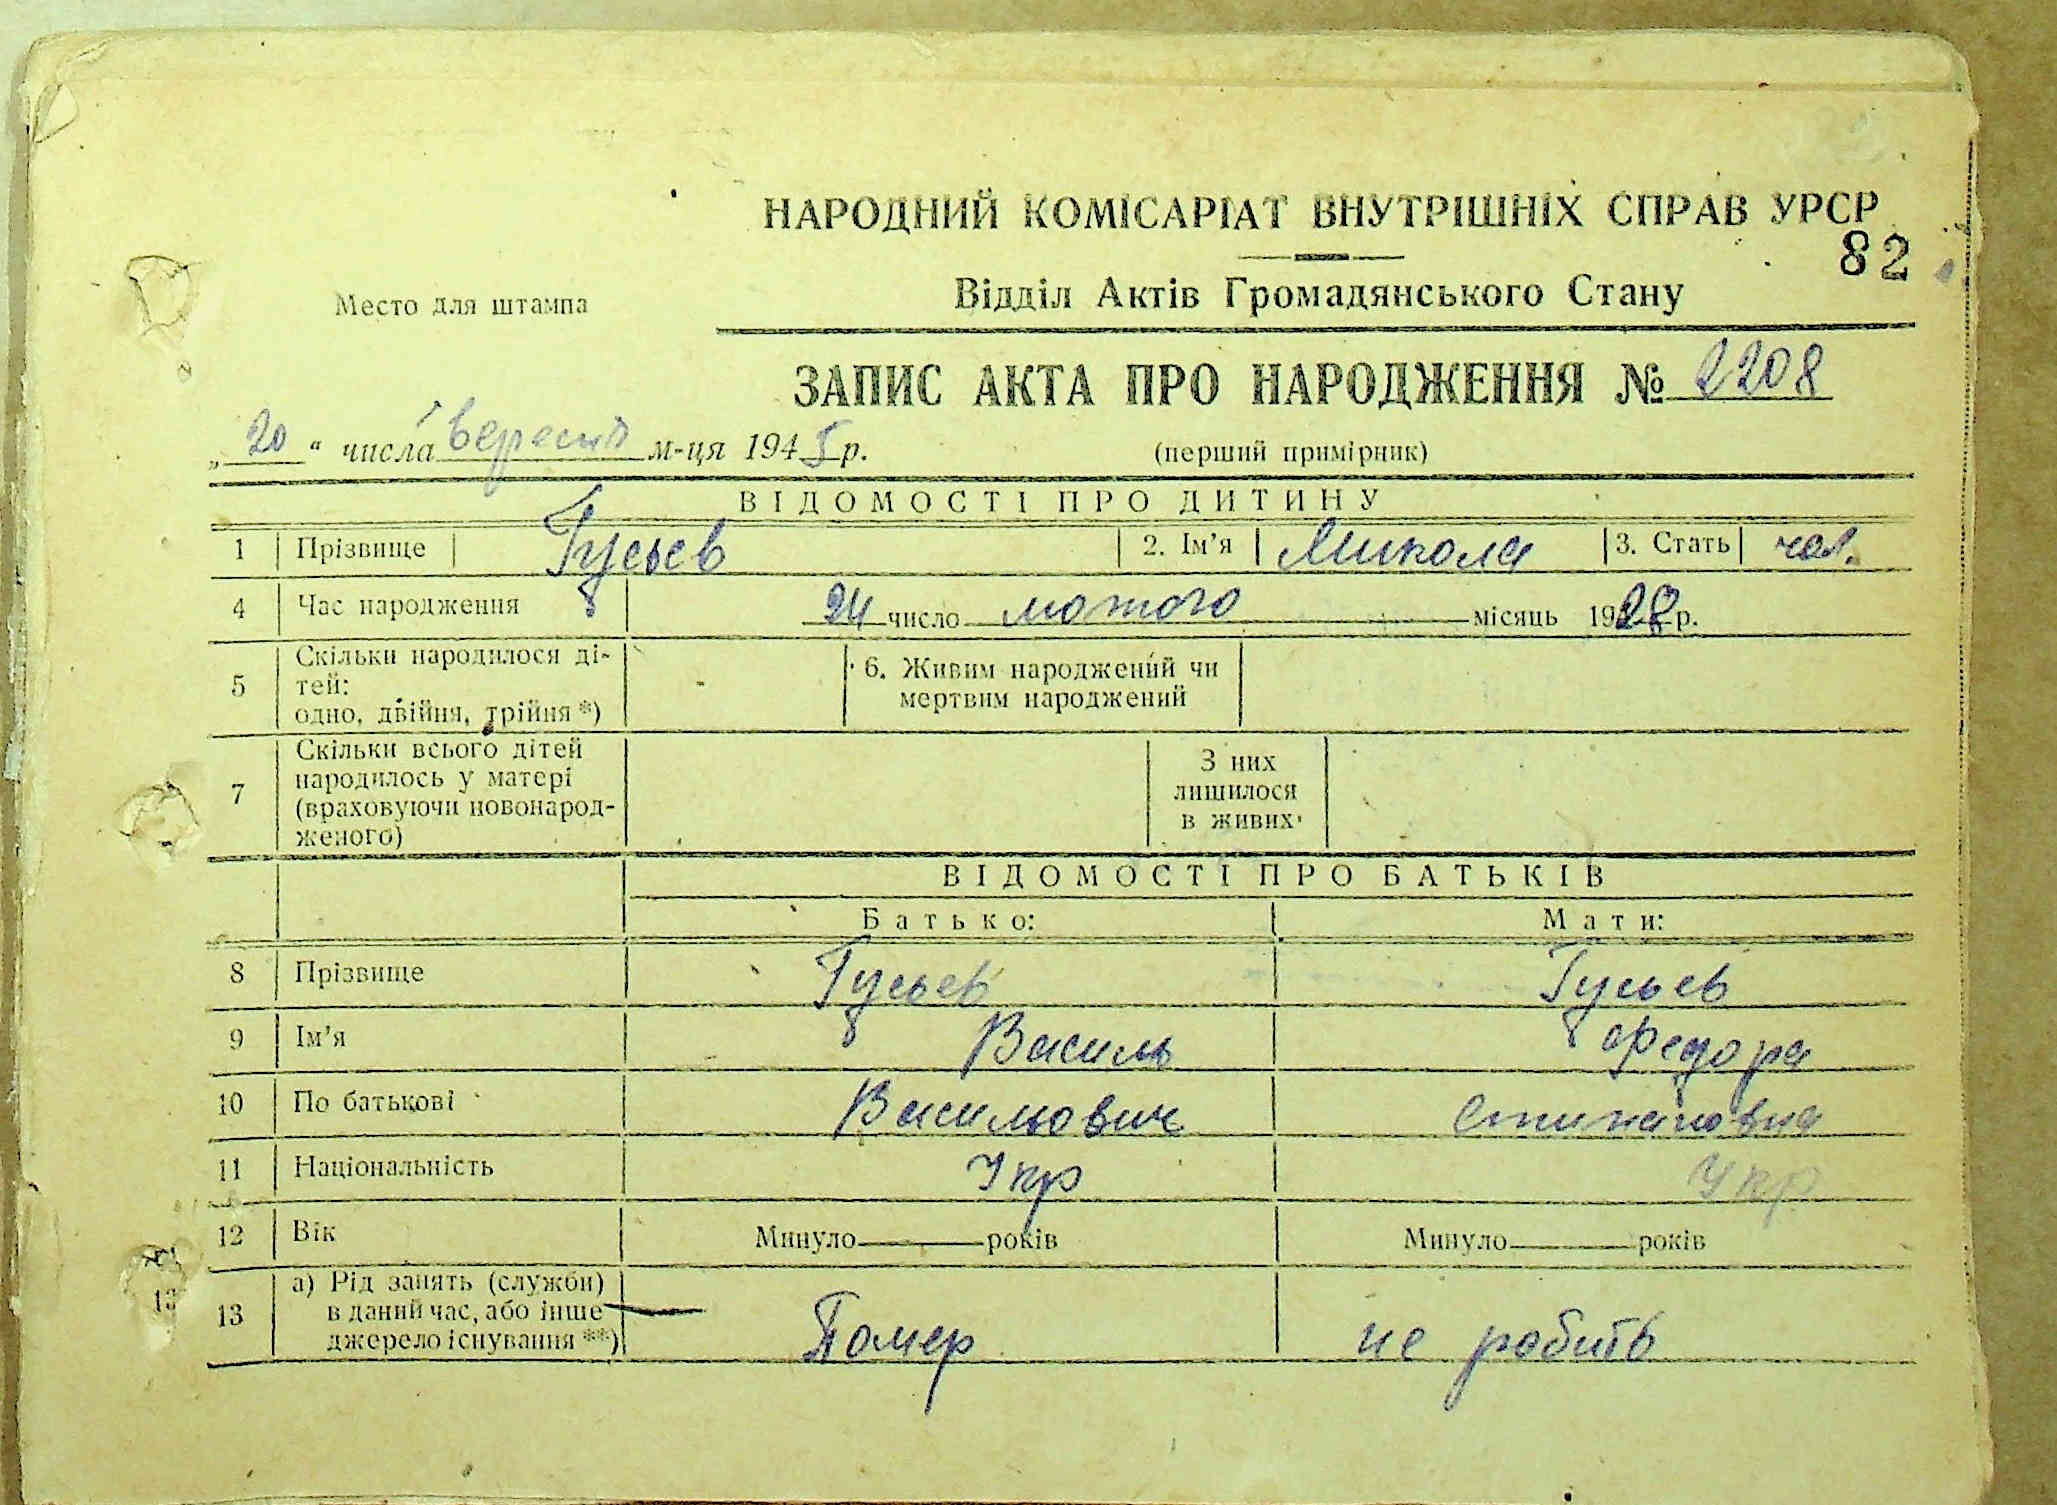 НАРОДНИЙ КОМІСАРІАТ ВНУТРІШНІХ СПРАВ УРСР
82
Место для штампа
Відділ Актів Громадянського Стану
ЗАПИС АКТА ПРО НАРОДЖЕННЯ № 2208
„20“ числа вересня м-ця 1945 р.
(перший примірник)
ВІДОМОСТІ ПРО ДИТИНУ
1 Прізвище Гусьєв 2. Ім'я Микола 3. Стать чол.
4 Час народження 24 число лютого місяць 1928 р.
5 Скільки народилося ді-
тей:
одно, двійня, трійня *)
6. Живим народжений чи
мертвим народжений
7 Скільки всього дітей
народилось у матері
(враховуючи новонарод-
женого)
З них
лишилося
в живих
ВІДОМОСТІ ПРО БАТЬКІВ
Батько: Мати:
8 Прізвище Гусьев Гусьев
9 Ім'я Василь Федора
10 По батькові Васильович Стипановна
11 Національність Укр Укр
12 Вік Минуло років Минуло років
13 а) Рід занять (служби)
в даний час, або інше
джерело існування **)
Помер не робить